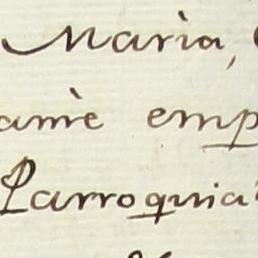 Maria,
amie emp
Parroquia